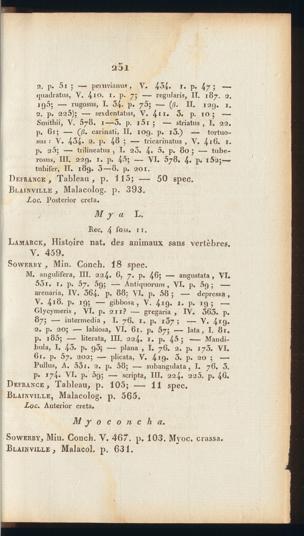 251
2. p. 51 ; — peruvianus, V. 434. 1. p. 47 ; —
quadratus, V. 410. 1. p. 7; — regularis, II. 187. 2.
195; — rugosus, I. 34. p. 75; — (β. II. 129. 1.
2. p. 225); — sexdentatus, V. 411. 3. p. 10; —
Smithii, V. 578. 1—3. p. 151 ; — striatus, I. 22.
p. 61; — (β. carinati, II. 109. p. 13.) — tortuo-
sus : V. 434. 2. p. 48 ; — tricarinatus, V. 416. 1.
p. 23; — trilineatus, I. 23. 4. 5. p. 80 ; — tube-
rosus, III. 229. 1. p. 43; — VI. 578. 4. p. 152;—
tubifer, II. 189. 3—8. p. 201.
DEFRANCE, Tableau, p. 115; — 50 spec.
BLAINVILLE, Malacolog. p. 393.
Loc. Posterior creta.
Mya L.
Rec. 4 foss. 11.
LAMARCK, Histoire nat. des animaux sans vertèbres.
V. 459.
SOWERBY, Min. Conch. 18 spec.
M. angulifera, III. 224. 6, 7. p. 46; — angustata, VI.
531. 1. p. 57. 59; — Antiquorum, VI. p. 59; —
arenaria, IV. 364. p. 88; VI. p. 58 ; — depressa,
V. 418. p. 19; — gibbosa, V. 419. 1. p. 19 ; —
Glycymeris, VI. p. 211? — gregaria, IV. 363. p.
87; — intermedia, I. 76. 1. p. 157 ; — V. 419.
2. p. 20; — labiosa, VI. 61. p. 57; — lata, I. 81.
p. 185; — literata, III. 224. 1. p. 45 ; — Mandi-
bula, I. 43. p. 93; — plana, I. 76. 2. p. 173. VI.
61. p. 57. 202; — plicata, V. 419. 3. p. 20 ; —
Pullus, A. 531. 2. p. 58; — subangulata, I. 76. 3.
p. 174. VI. p. 59; — scripta, III. 224. 225. p. 46.
DEFRANCE, Tableau, p. 105; — 11 spec.
BLAINVILLE, Malacolog. p. 565.
Loc. Anterior creta.
Myoconcha.
SOWERBY, Min. Conch. V. 467. p. 103. Myoc. crassa.
BLAINVILLE, Malacol. p. 631.